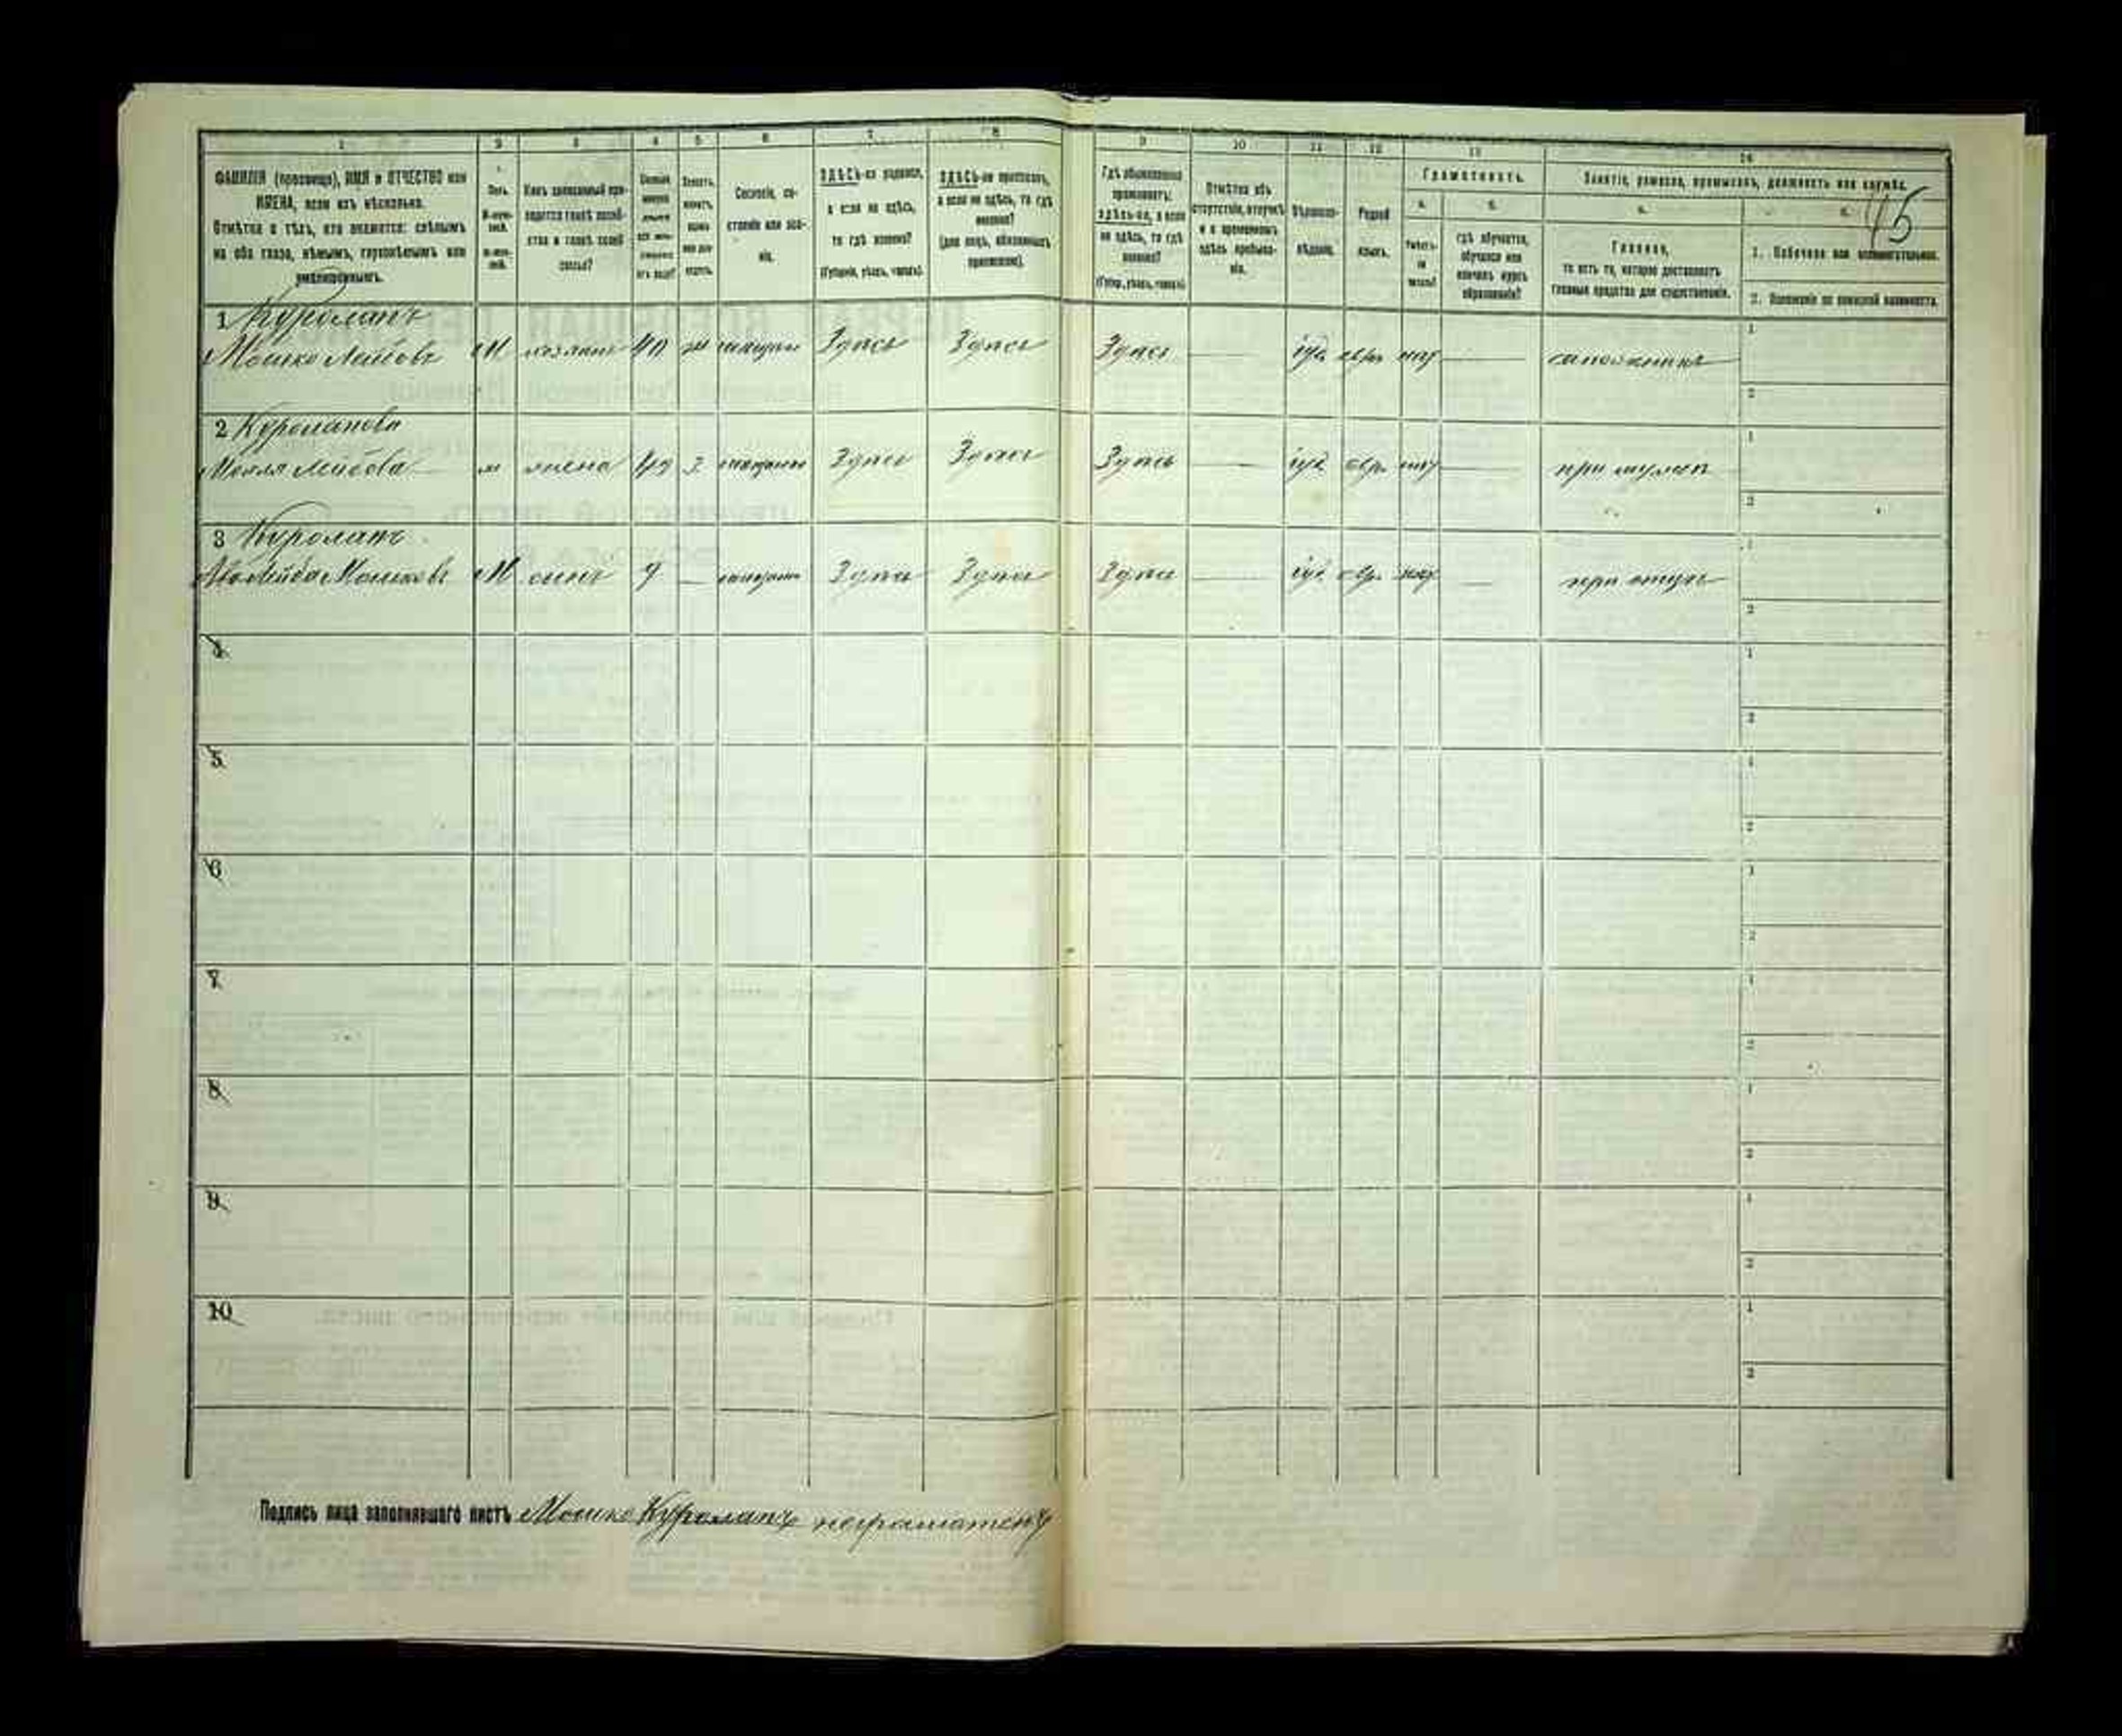 45
1 2 3 4 5 6 7 8 9 10 11 12 13 14
ФАМИЛІЯ (прозвище), ИМЯ и ОТЧЕСТВО или
ИМЕНА, если ихъ нѣсколько.
Отмѣтка о тѣхъ, кто окажется: слѣпымъ
на оба глаза, нѣмымъ, глухонѣмымъ или
умалишеннымъ.
Полъ.
Какъ записанный при-
ходится главѣ хозяй-
ства и главѣ своей
семьи?
Сословіе, со-
стояніе или зва-
ніе.
ЗДѢСЬ-ли родился,
а если не здѣсь,
то гдѣ именно?
(Губернія, уѣздъ, городъ).
ЗДѢСЬ-ли приписанъ,
а если не здѣсь, то гдѣ
именно?
(для лицъ, обязанныхъ
припискою).
Гдѣ обыкновенно
проживаетъ:
здѣсь-ли, а если
не здѣсь, то гдѣ
именно?
(Губер., уѣздъ, городъ).
Отмѣтка объ
отсутствіи, отлучкѣ
и о временномъ
здѣсь пребыва-
ніи.
Вѣроиспо-
вѣданіе.
Родной
языкъ.
Грамотность.
а. б.
Умѣетъ-
ли
читать?
гдѣ обучается,
обучался или
кончилъ курсъ
образованія?
Занятіе, ремесло, промыселъ, должность или служба.
а. б.
Главное,
то есть то, которое доставляетъ
главныя средства для существованія.
1. Побочное или вспомогательное.
2. Положеніе по воинской повинности.
1 Куропатъ
Мошко Лейбовъ М хозяинъ 40 ж мещан Здѣсь Здѣсь Здѣсь — іуд. евр. нѣт — сапожникъ
1
2
2 Куропатова
Лейбова жена 49 мещан Здѣсь Здѣсь Здѣсь — іуд. евр. нѣт — при мужѣ
1
2
3 Куропатъ
Лейба Мошковъ М сынъ 9 — мещан Здѣсь Здѣсь Здѣсь — іуд. евр. нѣт — при отцѣ
1
2
4
1
2
5
1
2
6
1
2
7
1
2
8
1
2
9
1
2
10
1
2
Подпись лица заполнявшаго листъ Мошко Куропатъ неграмотенъ